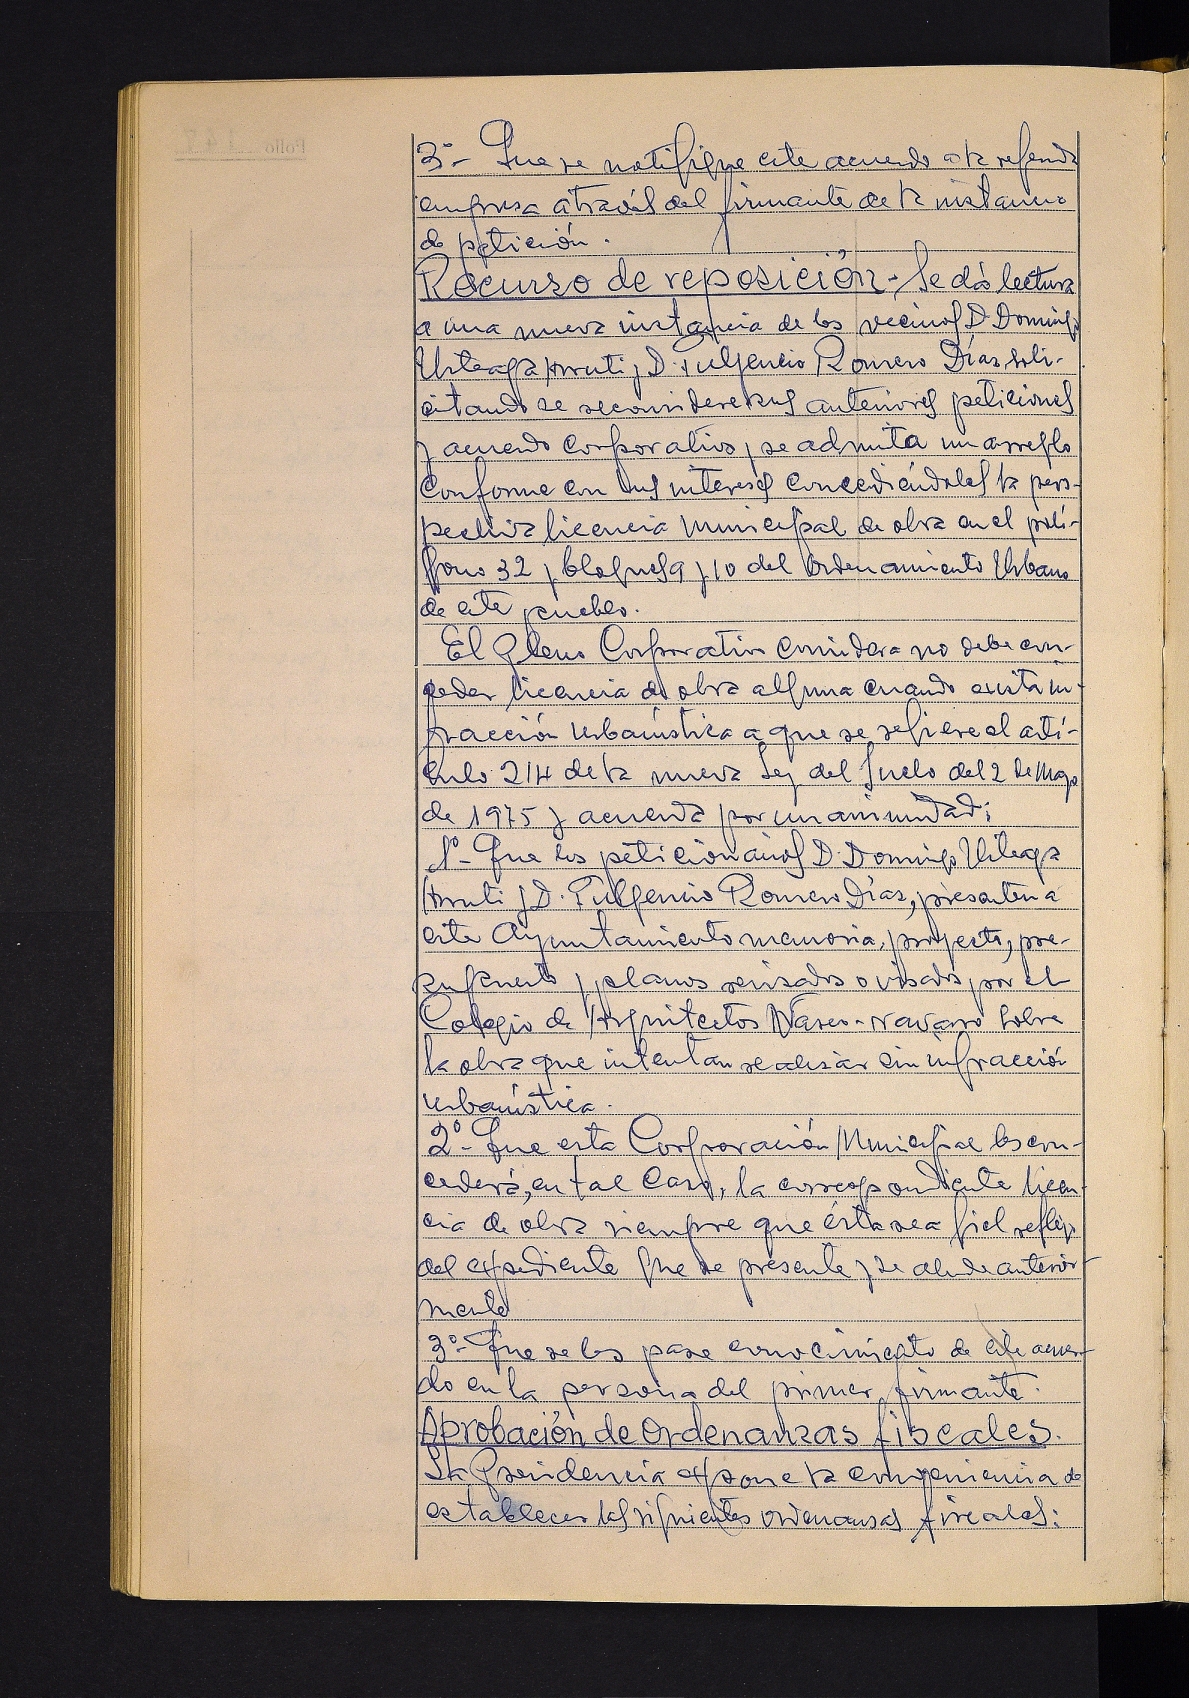 3º- Que se notifique este acuerdo a la referida
empresa através del firmante de la instancia
de petición.
Recurso de reposición.- Se dá lectura
a una nueva instancia de los vecinos D. Domingo
Urteaga Arruti y D. Fulgencio Romero Días, soli-
citando se reconsideren sus anteriores peticiones
y acuerdo corporativo, y se admita un arreglo
conforme con sus intereses concediéndoles la pers-
pectiva licencia municipal de obra en el polí-
gono 32, bloques 9 y 10 del Ordenamiento Urbano
de este pueblo.
El Pleno Corporativo considera no debe con-
ceder licencia de obra alguna cuando exista in-
fracción urbanística a que se refiere el artí-
culo 214 de la nueva Ley del Suelo del 2 de Mayo
de 1975 y acuerda por unanimidad:
1º- Que los peticionarios D. Domingo Urteaga
Arruti y D. Fulgencio Romero Días, presenten a
este Ayuntamiento memoria, proyecto, pre-
supuesto y planos revisados o visados por el
Colegio de Arquitectos Vasco-navarro sobre
la obra que intentan realizar sin infracción
urbanística.
2º- Que esta Corporación Municipal les con-
cederá, en tal caso, la correspondiente licen-
cia de obra siempre que ésta sea fiel reflejo
del expediente que se presente y se alude anterior-
mente
3º- Que se les pase conocimiento de este acuer-
do en la persona del primer firmante.
Aprobación de Ordenanzas fiscales.
La Presidencia expone la conveniencia de
establecer las siguientes ordenanzas fiscales:
Folio